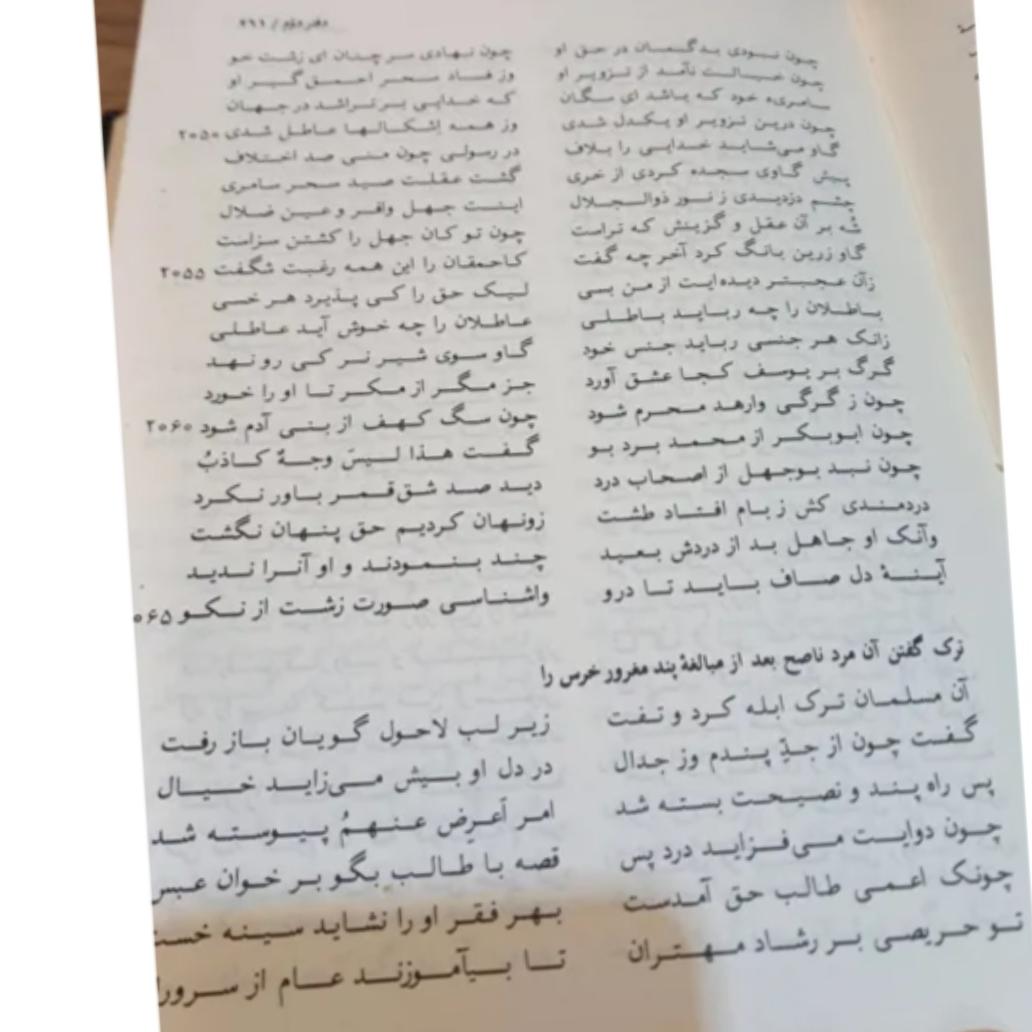 دفتر دوّم / ۲۶۱
چون نبودی بدگمان در حق او چون نهادی سر چنان ای زشت خو
چون خیالت نامد از تزویر او وز فساد سحر احمق‌گیر او
سامریء خود که باشد ای سگان که خدایی بر تراشد در جهان
چون درین تزویر او یکدل شدی وز همه اِشکالها عاطل شدی ۲۰۵۰
گاو می‌شاید خدایی را بلاف در رسولی چون منی صد اختلاف
پیش گاوی سجده کردی از خری گشت عقلت صید سحر سامری
چشم دزدیدی ز نور ذوالجلال اینت جهل وافر و عین ضلال
شُه بر آن عقل و گزینش که تراست چون تو کان جهل را کشتن سزاست
گاو زرین بانگ کرد آخر چه گفت کاحمقان را این همه رغبت شگفت ۲۰۵۵
زآن عجبتر دیده‌ایت از من بسی لیک حق را کی پذیرد هر خسی
باطلان را چه رباید باطلی عاطلان را چه خوش آید عاطلی
زانک هر جنسی رباید جنس خود گاو سوی شیر نر کی رو نهد
گرگ بر یوسف کجا عشق آورد جز مگر از مکر تا او را خورد
چون ز گرگی وارهد محرم شود چون سگ کهف از بنی آدم شود ۲۰۶۰
چون ابوبکر از محمد برد بو گفت هذا لیسَ وجهٌ کاذبُ
چون نبد بوجهل از اصحاب درد دید صد شق قمر باور نکرد
دردمندی کش ز بام افتاد طشت زونهان کردیم حق پنهان نگشت
وآنک او جاهل بد از دردش بعید چند بنمودند و او آنرا ندید
آینهٔ دل صاف باید تا درو واشناسی صورت زشت از نکو ۰۶۵
ترک گفتن آن مرد ناصح بعد از مبالغهٔ پند مغرور خرس را
آن مسلمان ترک ابله کرد و تفت زیر لب لاحول گویان باز رفت
گفت چون از جدِّ پندم وز جدال در دل او بیش می‌زاید خیال
پس راه پند و نصیحت بسته شد امر اَعرِض عنهمُ پیوسته شد
چون دوایت می‌فزاید درد پس قصه با طالب بگو بر خوان عبس
چونک اعمی طالب حق آمدست بهر فقر او را نشاید سینه خست
تو حریصی بر رشاد مهتران تا بیآموزند عام از سرورا